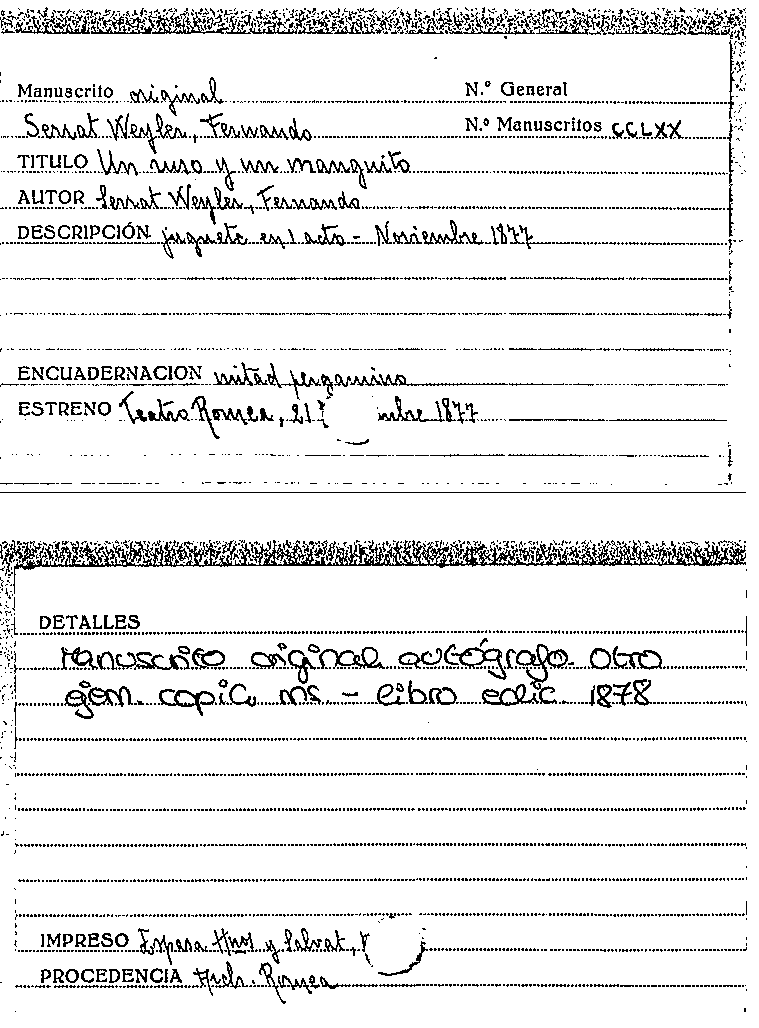 Manuscrito original N.º General
Serrat Weyler, Fernando N.º Manuscritos CCLXX
TITULO Un ruso y un manguito
AUTOR Serrat Weyler, Fernando
DESCRIPCIÓN juguete en 1 acto - Noviembre 1877
ENCUADERNACION mitad pergamino
ESTRENO Teatro Romea, 21 mbre 1877
DETALLES
Manuscrito original autógrafo. Otro
ejem. copia ms. - libro edic. 1878
IMPRESO Espasa Hnos y Salvat,
PROCEDENCIA Arch. Romea